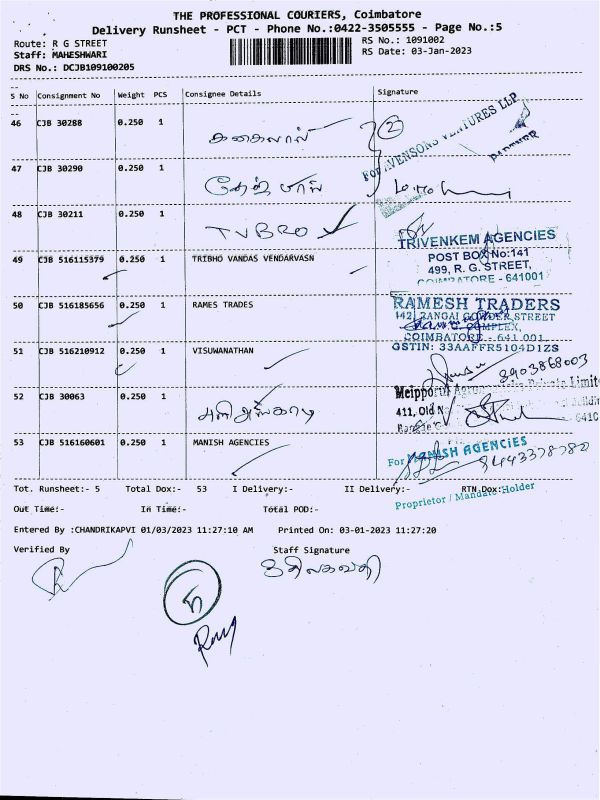 THE PROFESSIONAL COURIERS, Coimbatore
Delivery Runsheet - PCT - Phone No.:0422-3505555 - Page No.:5
Route: R G STREET
RS No.: 1091002
Staff: MAHESHWARI
RS Date: 03-Jan-2023
DRS No.: DCJB109100205
S No Consignment No Weight PCS Consignee Details Signature
46 CJB 30288 0.250 1
2
For AVENSONS VENTURES LLP
PARTNER
47 CJB 30290 0.250 1
48 CJB 30211 0.250 1 TVBRO
TRIVENKEM AGENCIES
POST BOX No:141
499, R. G. STREET,
COIMBATORE - 641001
49 CJB 516115379 0.250 1 TRIBHO VANDAS VENDARVASN
50 CJB 516185656 0.250 1 RAMES TRADES
RAMESH TRADERS
142, RANGAI GOWDER STREET
COMPLEX,
COIMBATORE - 641 001
GSTIN: 33AAFFR5104D1ZS
51 CJB 516210912 0.250 1 VISUWANATHAN
8903868003
52 CJB 30063 0.250 1
411, Old N
53 CJB 516160601 0.250 1 MANISH AGENCIES
For MANISH AGENCIES
8443378780
Proprietor / Mandate Holder
Tot. Runsheet:- 5 Total Dox:- 53 I Delivery:- II Delivery:- RTN.Dox:-
Out Time:- In Time:- Total POD:-
Entered By :CHANDRIKAPVI 01/03/2023 11:27:10 AM Printed On: 03-01-2023 11:27:20
Verified By Staff Signature